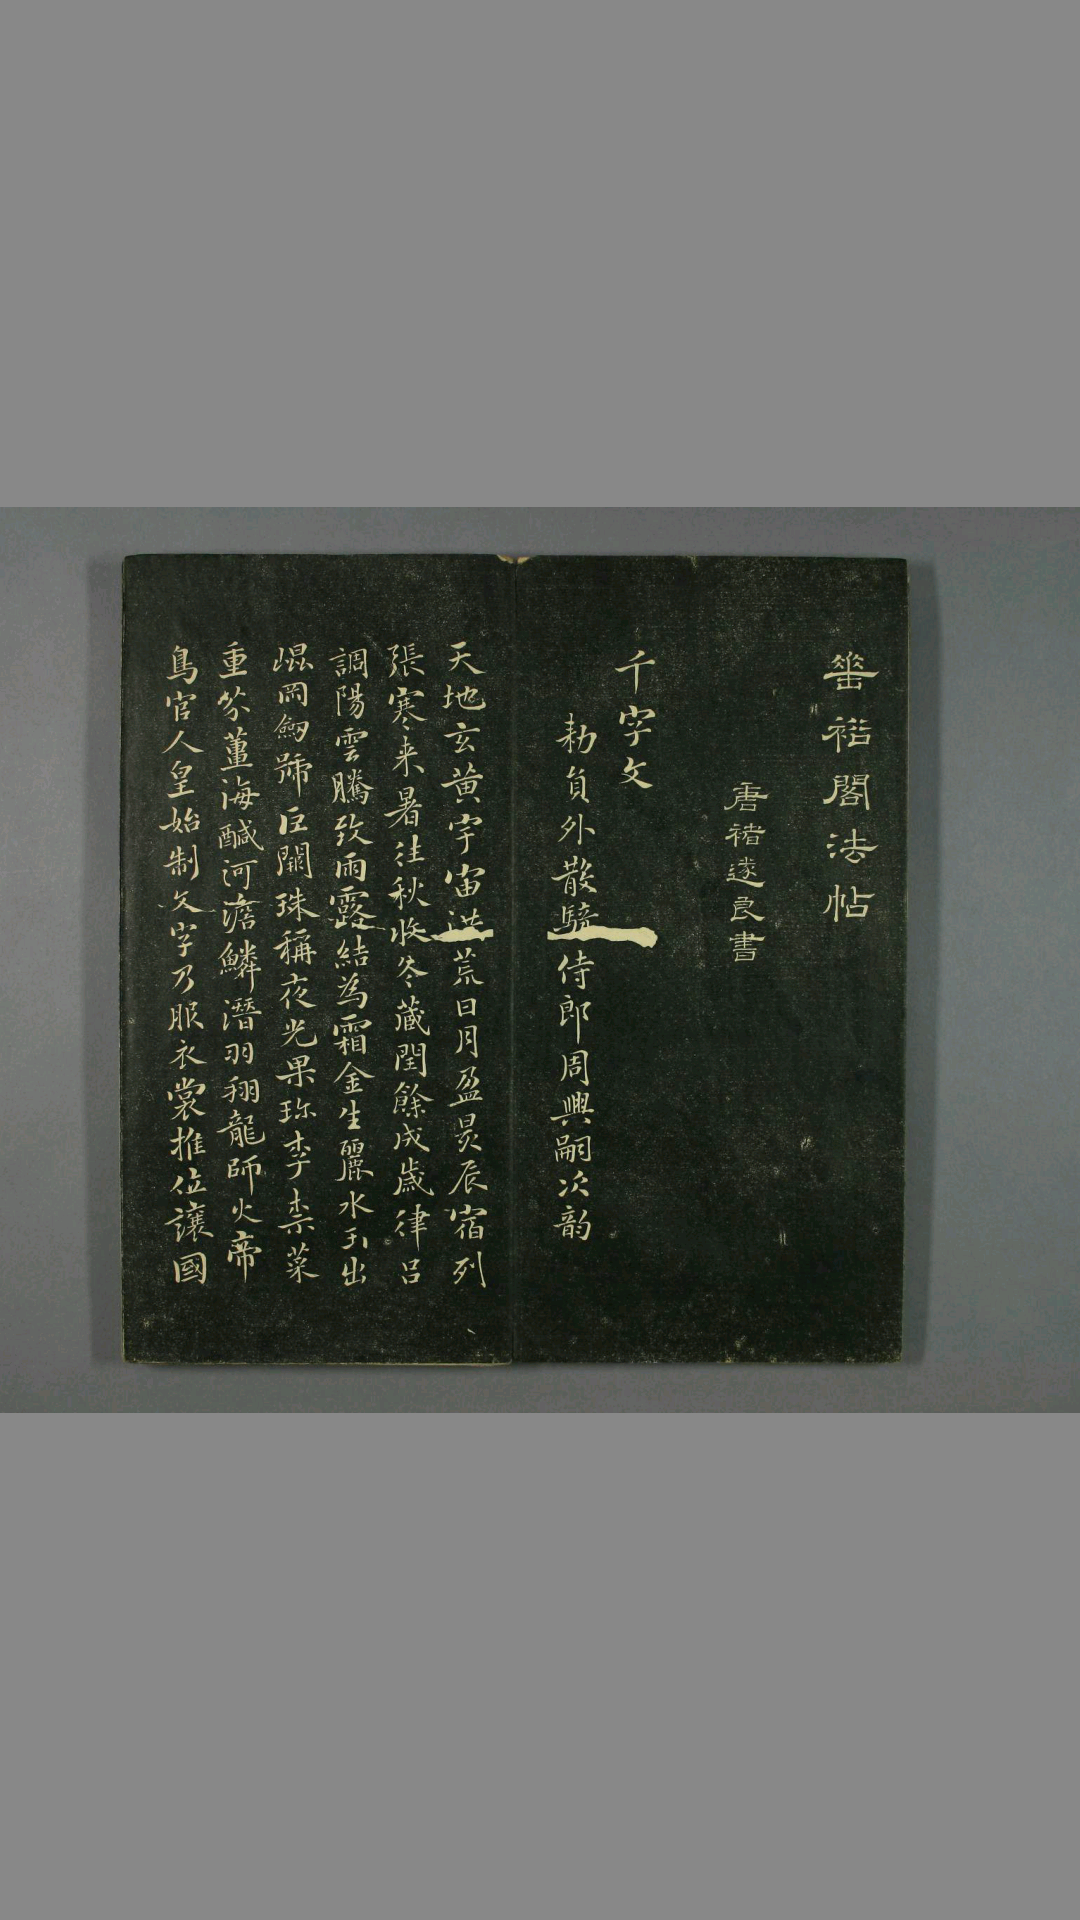 𠌶裕閣法帖
唐褚遂良書
千字文
勑員外散騎侍郎周興嗣次韵
天地玄黄宇宙洪荒日月盈昃辰宿列
張寒来暑往秋收冬蔵閏餘成歳律吕
調陽雲騰致雨露結為霜金生麗水玉出
崐岡劒號巨闕珠稱夜光果珎李柰菜
重芥薑海鹹河澹鱗潛羽翔龍師火帝
鳥官人皇始制文字乃服衣裳推位讓國